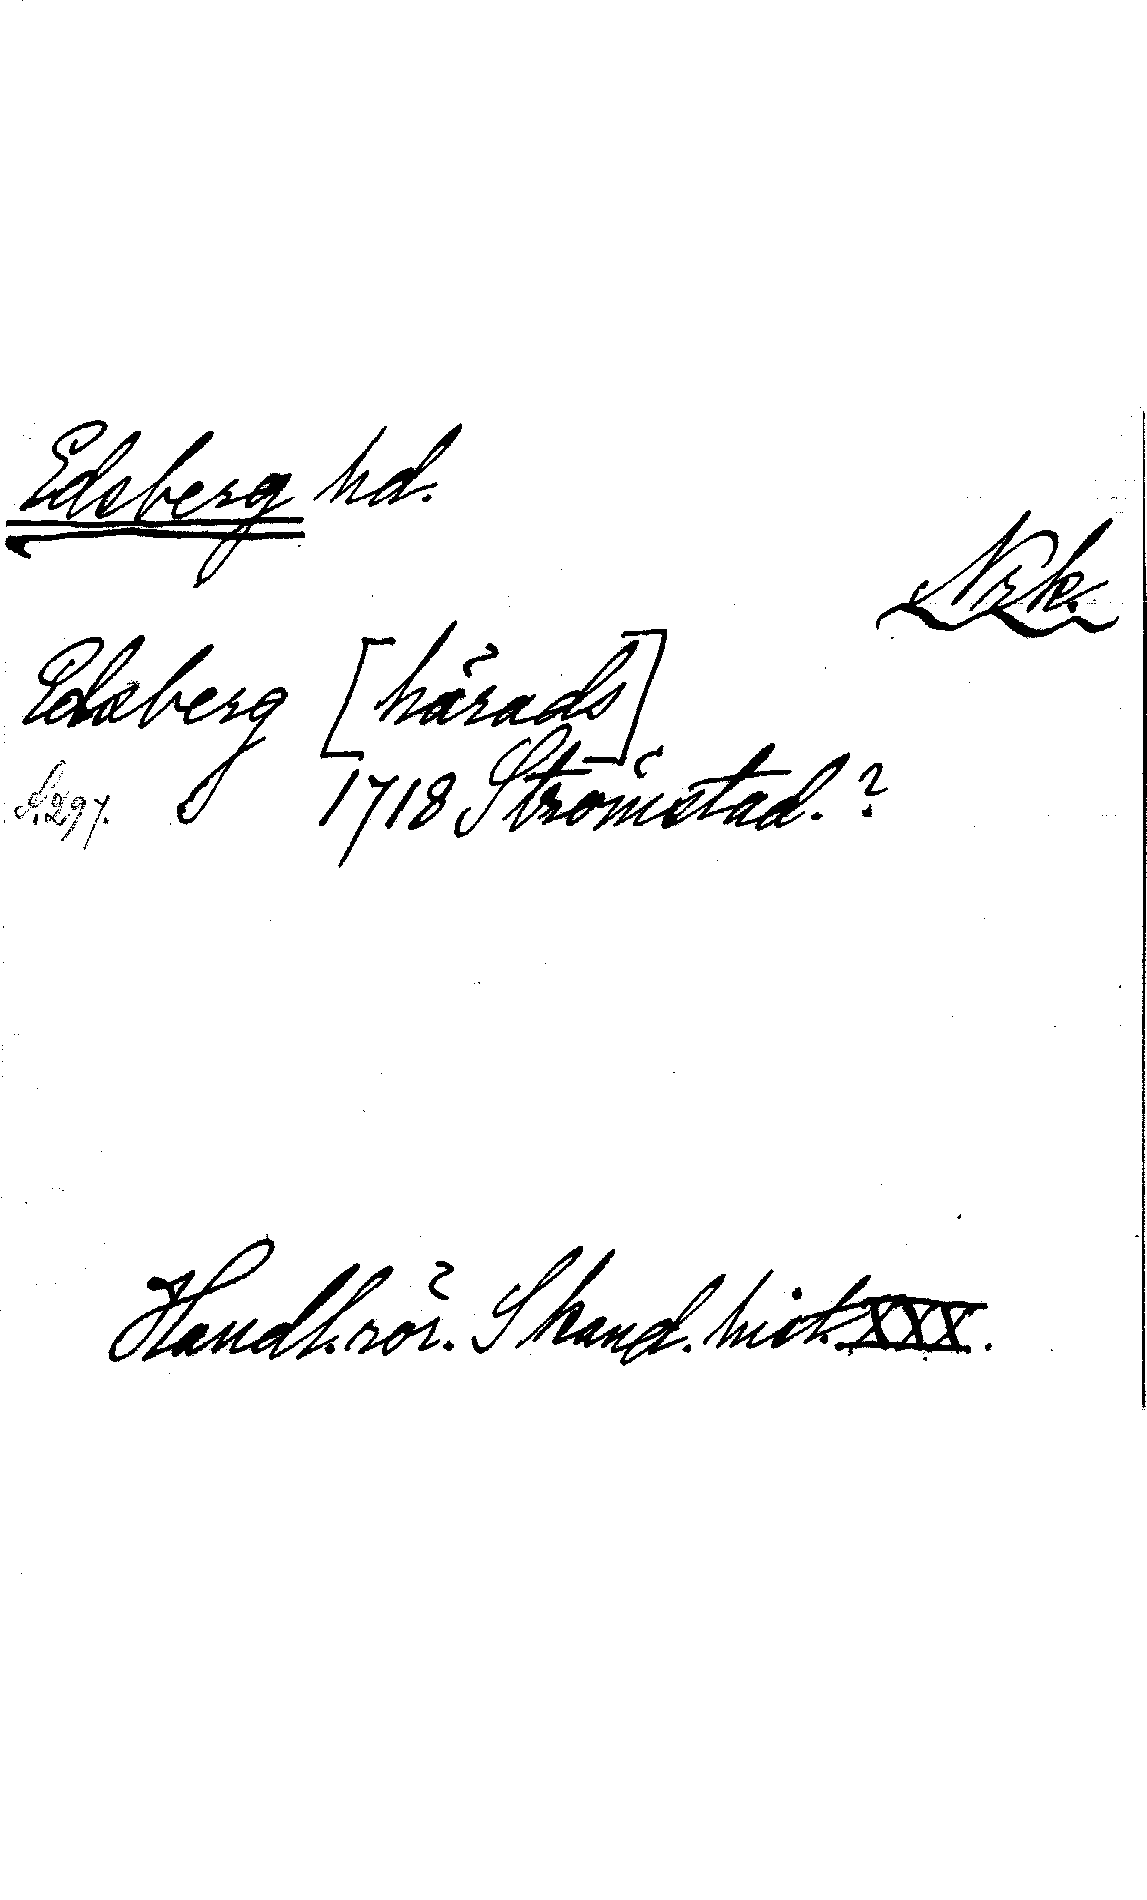 Edsberg hd.
Nrk.
Edsberg [härads]
S. 297. 1718 Strömstad.?
Handl. rör. Skand. hist. XXX.